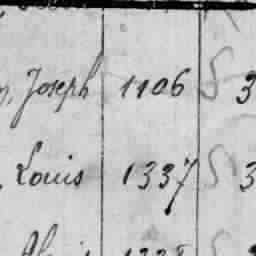 Joseph 1106 S 3
Louis 1337 S 3